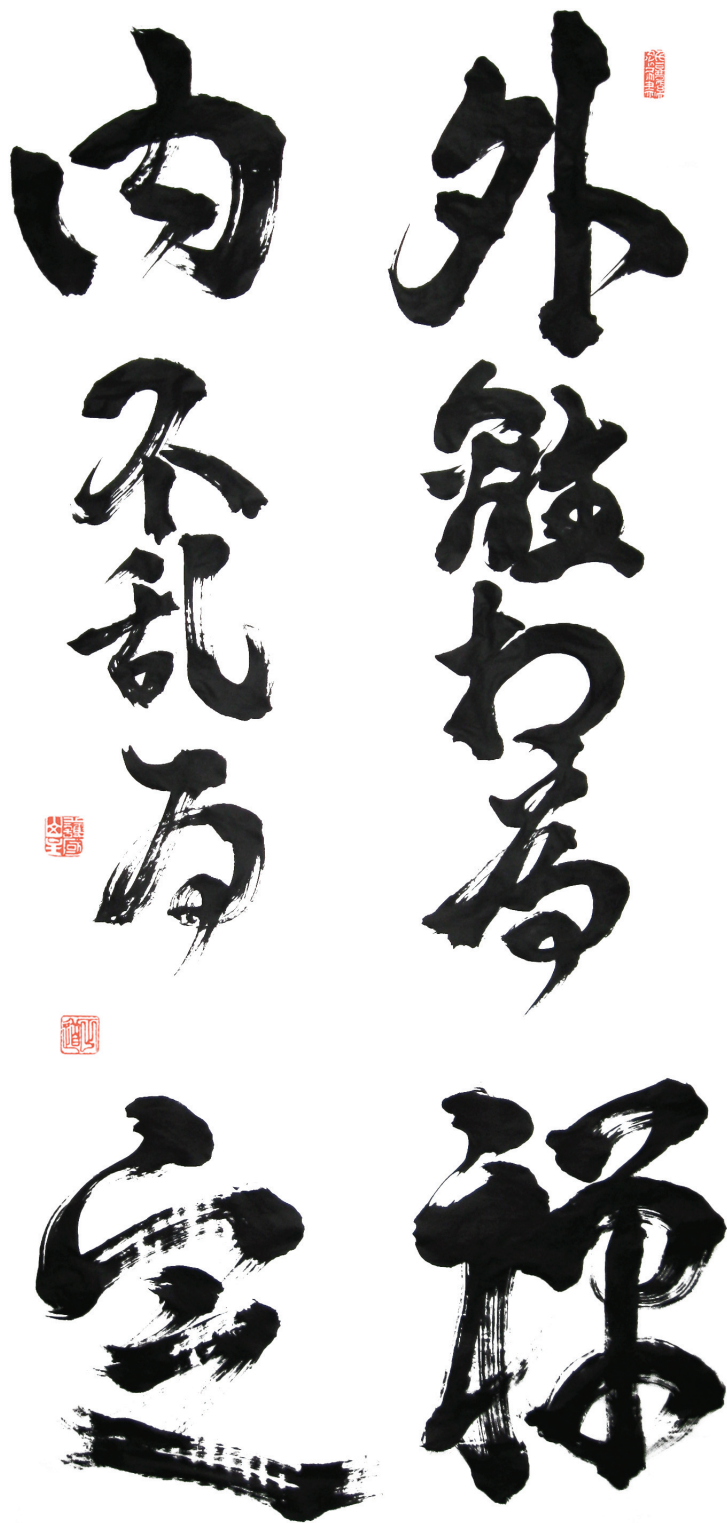 外離相為禪
内不乱為定